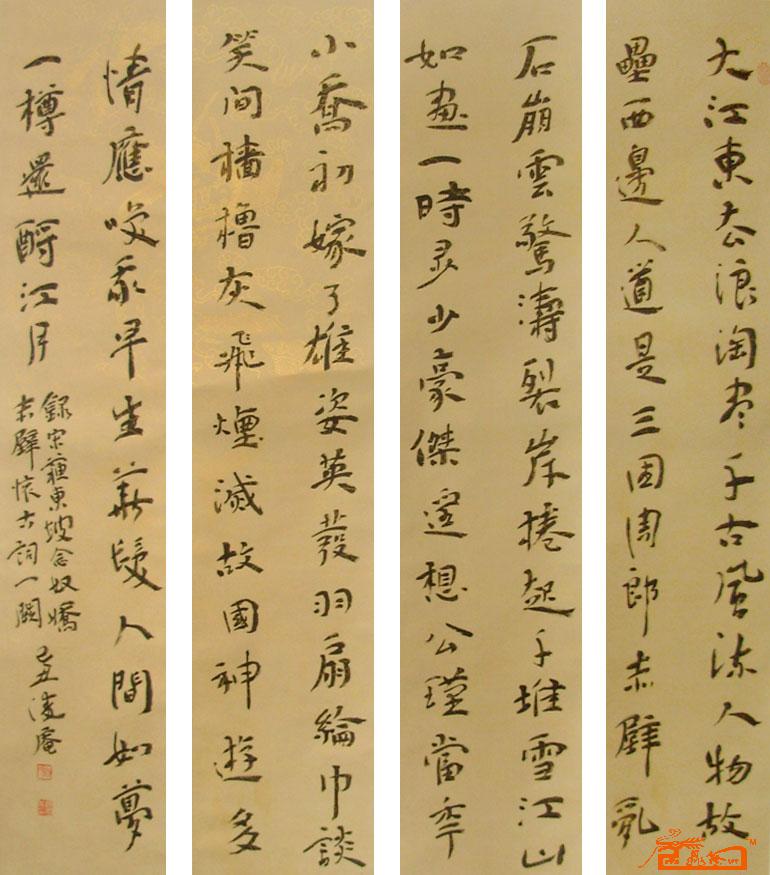 大江東去浪淘尽千古風流人物故
壘西邊人道是三国周郎赤壁亂
石崩雲驚濤裂岸捲起千堆雪江山
如畫一時多少豪傑遙想公瑾當年
小喬初嫁了雄姿英發羽扇綸巾談
笑间檣櫓灰飛煙滅故國神遊多
情應咲我早生華髮人間如夢
一樽還酹江月
錄宋蘇東坡念奴嬌
赤壁懷古詞一闋
丑凌庵